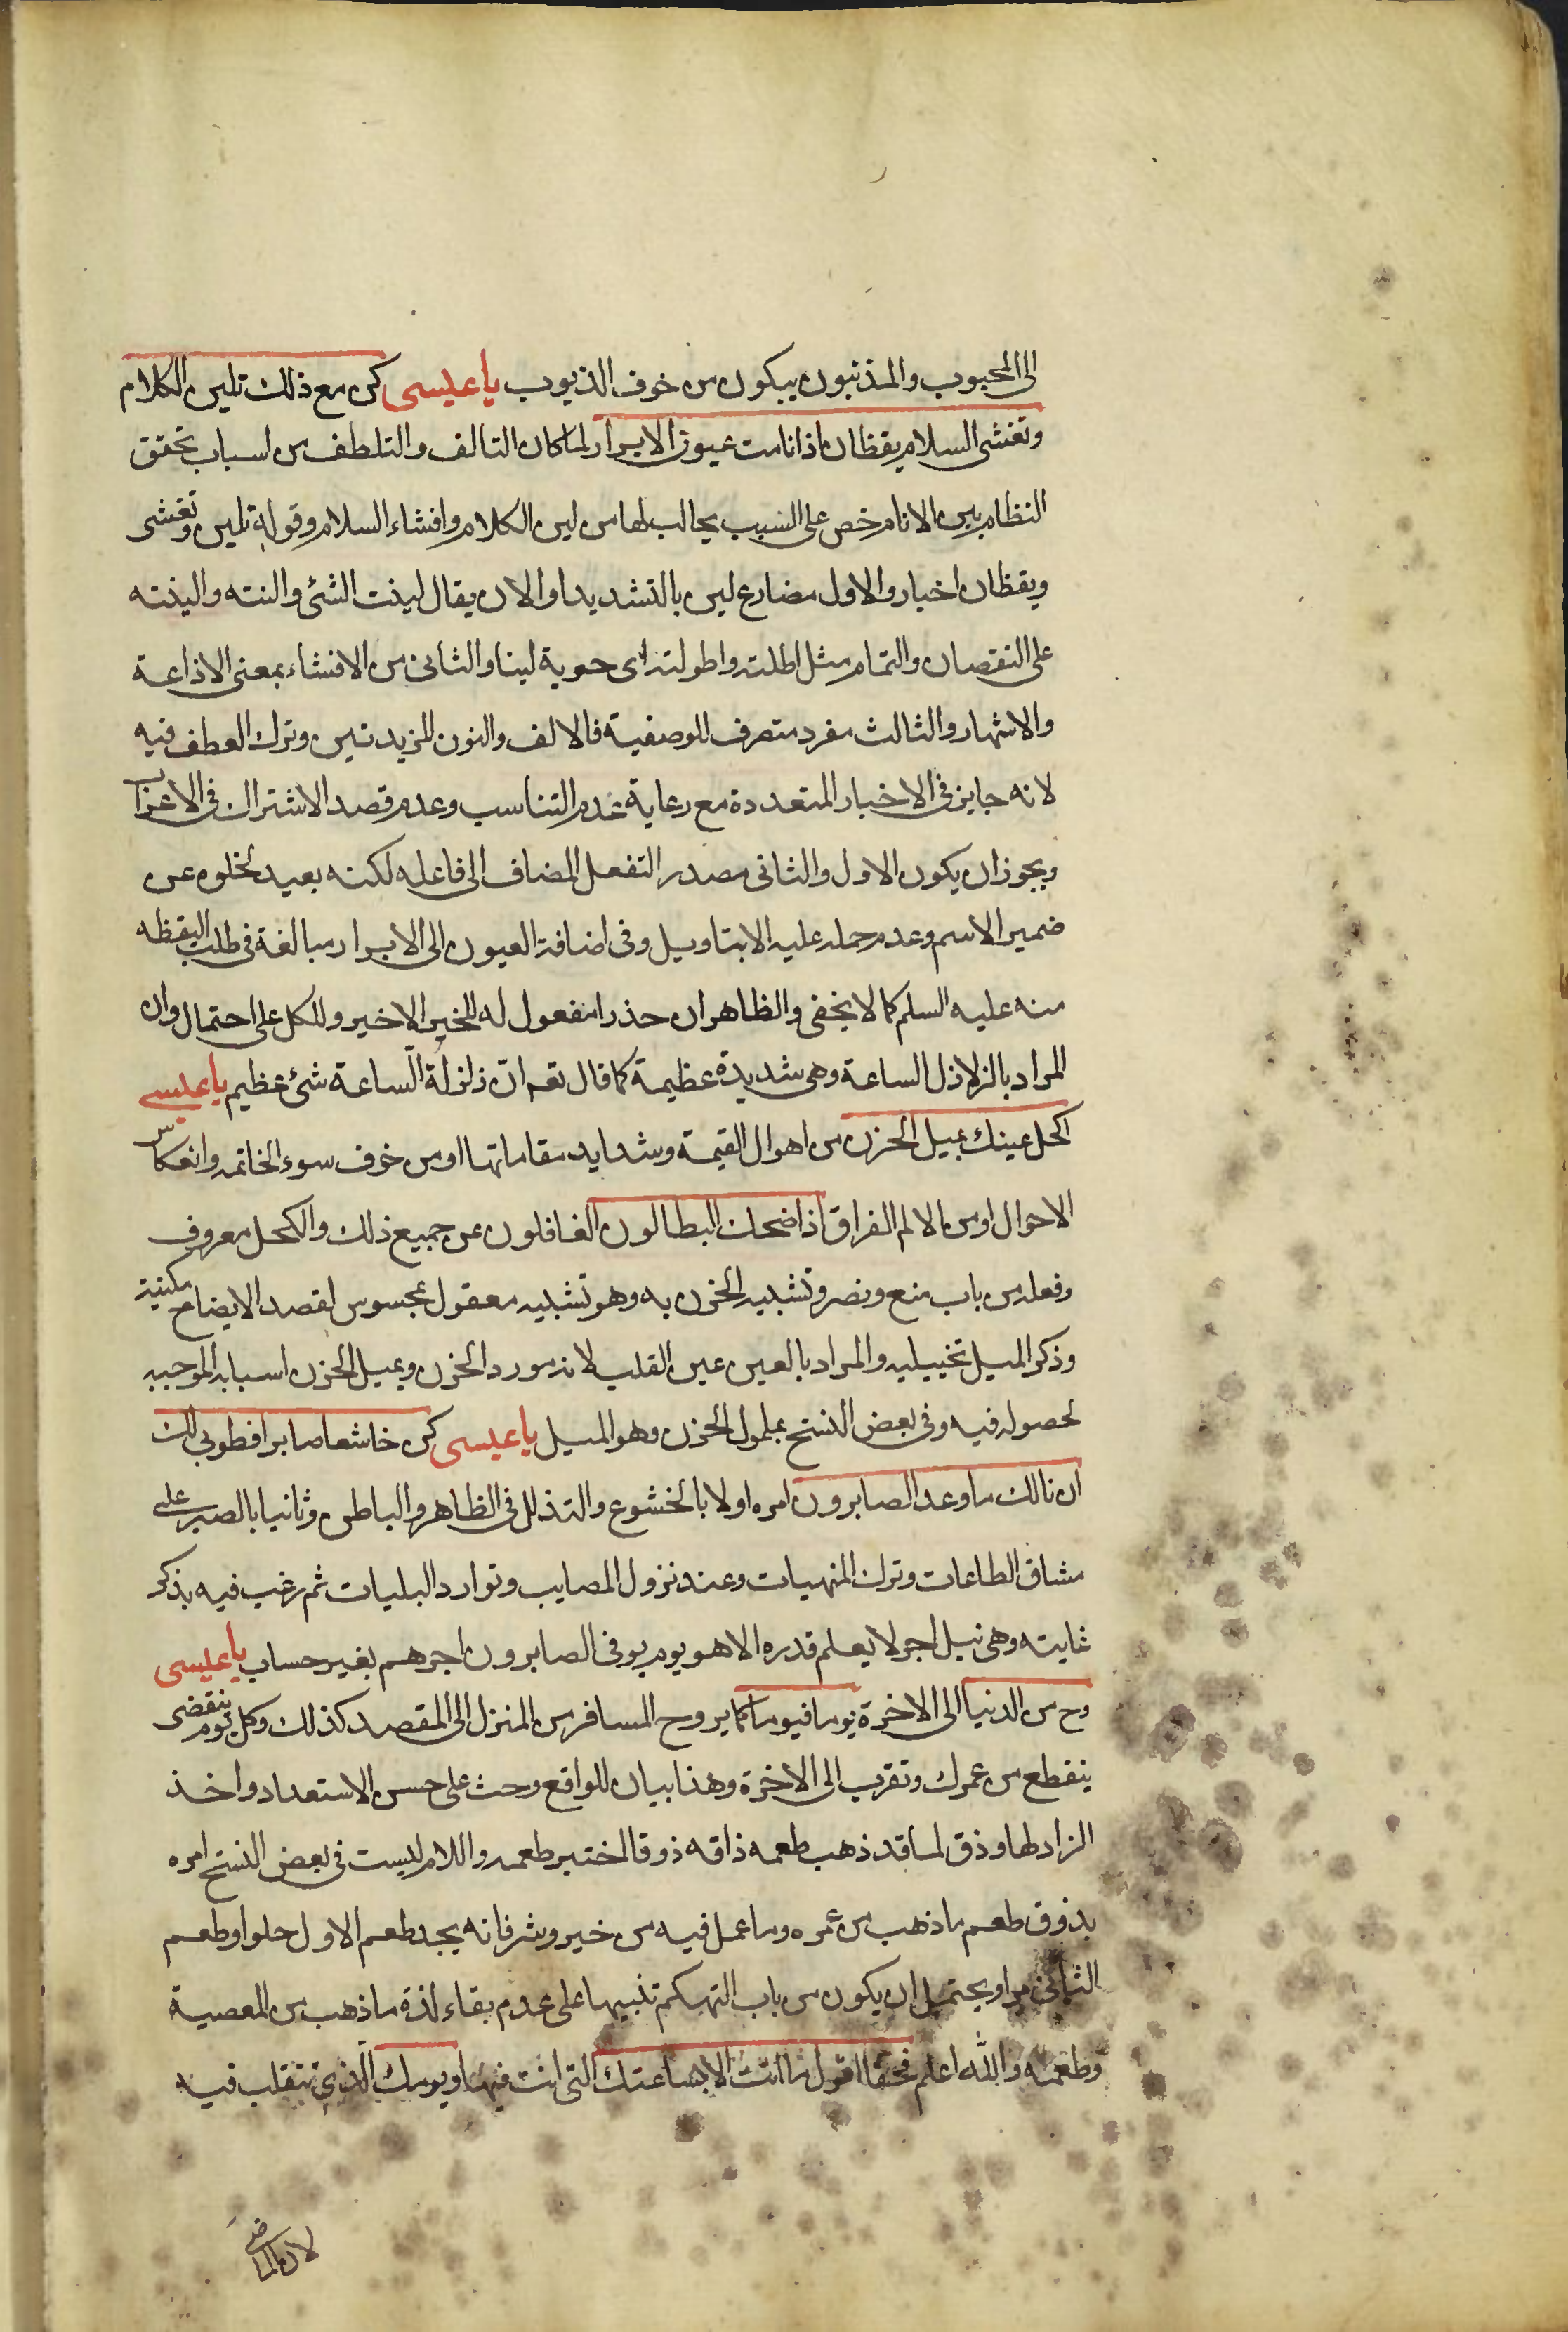 الى المحبوب والمذنبون يبكون من خوف الذنوب يا عيسى كن مع ذلك تلين الكلام
وتفشى السلام يقظان اذا نامت عيون الابرار لما كان التالف والتلطف من اسباب تحقق
النظام بين الانام خص على السبب يجالب لها من لين الكلام وافشاء السلام وقوله تلين وتفشى
ويقظان اخبار والاول مضارع لين بالتشديد او الان يقال لينت الشئ والنته والينته
على النقصان والتمام مثل اطلته واطولته اى حوية لينا والثانى من الافشاء بمعنى الاذاعة
والاشهار والثالث مفرد متصرف للوصفية فالالف والنون للمزيدتين وترك العطف فيه
لانه جايز فى الاخبار المتعددة مع رعاية عدم التناسب وعدم قصد الاشتراك فى الاعراب
ويجوز ان يكون الاول والثانى مصدر التفعل المضاف الى فاعله لكنه بعيد لخلوه عن
ضمير الاسم وعدم حمله عليه الا بتاويل وفى اضافة العيون الى الابرار مبالغة فى طلب اليقظه
منه عليه السلم كما لا يخفى والظاهر ان حذرا مفعول له للخبر الاخير وللكل على احتمال وان
المراد بالزلازل الساعة وهى شديدة عظيمة كما قال تعه انّ زلزلة السّاعة شئ عظيم يا عيسى
اكحل عينك بميل الحزن من اهوال القيمة وشدايد مقاماتها او من خوف سوء الخاتمه وانعكاس
الاحوال او من الالم الفراق اذا ضحك البطالون الغافلون عن جميع ذلك والكحل معروف
وفعله من باب منع ونصر وتشبيه الحزن به وهو تشبيه معقول بمحسوس لقصد الايضاح مكنية
وذكر الميل تخييليه والمراد بالعين عين القلب لانه مورد الحزن وبميل الحزن اسبابه الموجبه
لحصوله فيه وفى بعض النسخ بملمول الحزن وهو الميل يا عيسى كن خاشعا صابرا فطوبى لك
ان نالك ما وعد الصابرون امره اولا بالخشوع والتذلل فى الظاهر والباطن وثانيا بالصبر على
مشاق الطاعات وترك المنهيات وعند نزول المصايب وتوارد البليات ثم رغب فيه بذكر
غايته وهى نيل اجر لا يعلم قدره الا هو يوم يوفى الصابرون اجرهم بغير حساب يا عيسى
رح من الدنيا الى الاخرة يوما فيوما كما يروح المسافر من المنزل الى المقصد كذلك وكل يوم ينقضى
ينقطع من عمرك وتقرب الى الاخرة وهذا بيان للواقع وحث على حسن الاستعداد واخذ
الزاد لها وذق لما قد ذهب طعمه ذاقه ذوقا المختبر طعمه واللام ليست فى بعض النسخ امره
بذوق طعم ما ذهب من عمره وما عمل فيه من خير وشر فانه يجد طعم الاول حلوا وطعم
الثانى مرا ويحتمل ان يكون من باب التهكم تنبيها على عدم بقاء لذة ما ذهب من المعصية
وطعمه والله اعلم فحقا اقول ما انت الا بساعتك التى انت فيها ويومك الّذى تتقلب فيه
لان الماضى